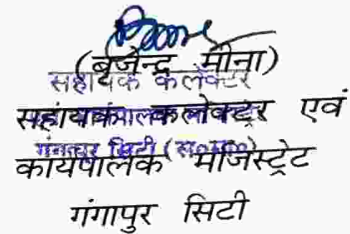 (बृजेन्द्र मीना)
सहायक कलेक्टर
सहायक कलेक्टर एवं
कार्यपालक मजिस्ट्रेट
गंगापुर सिटी